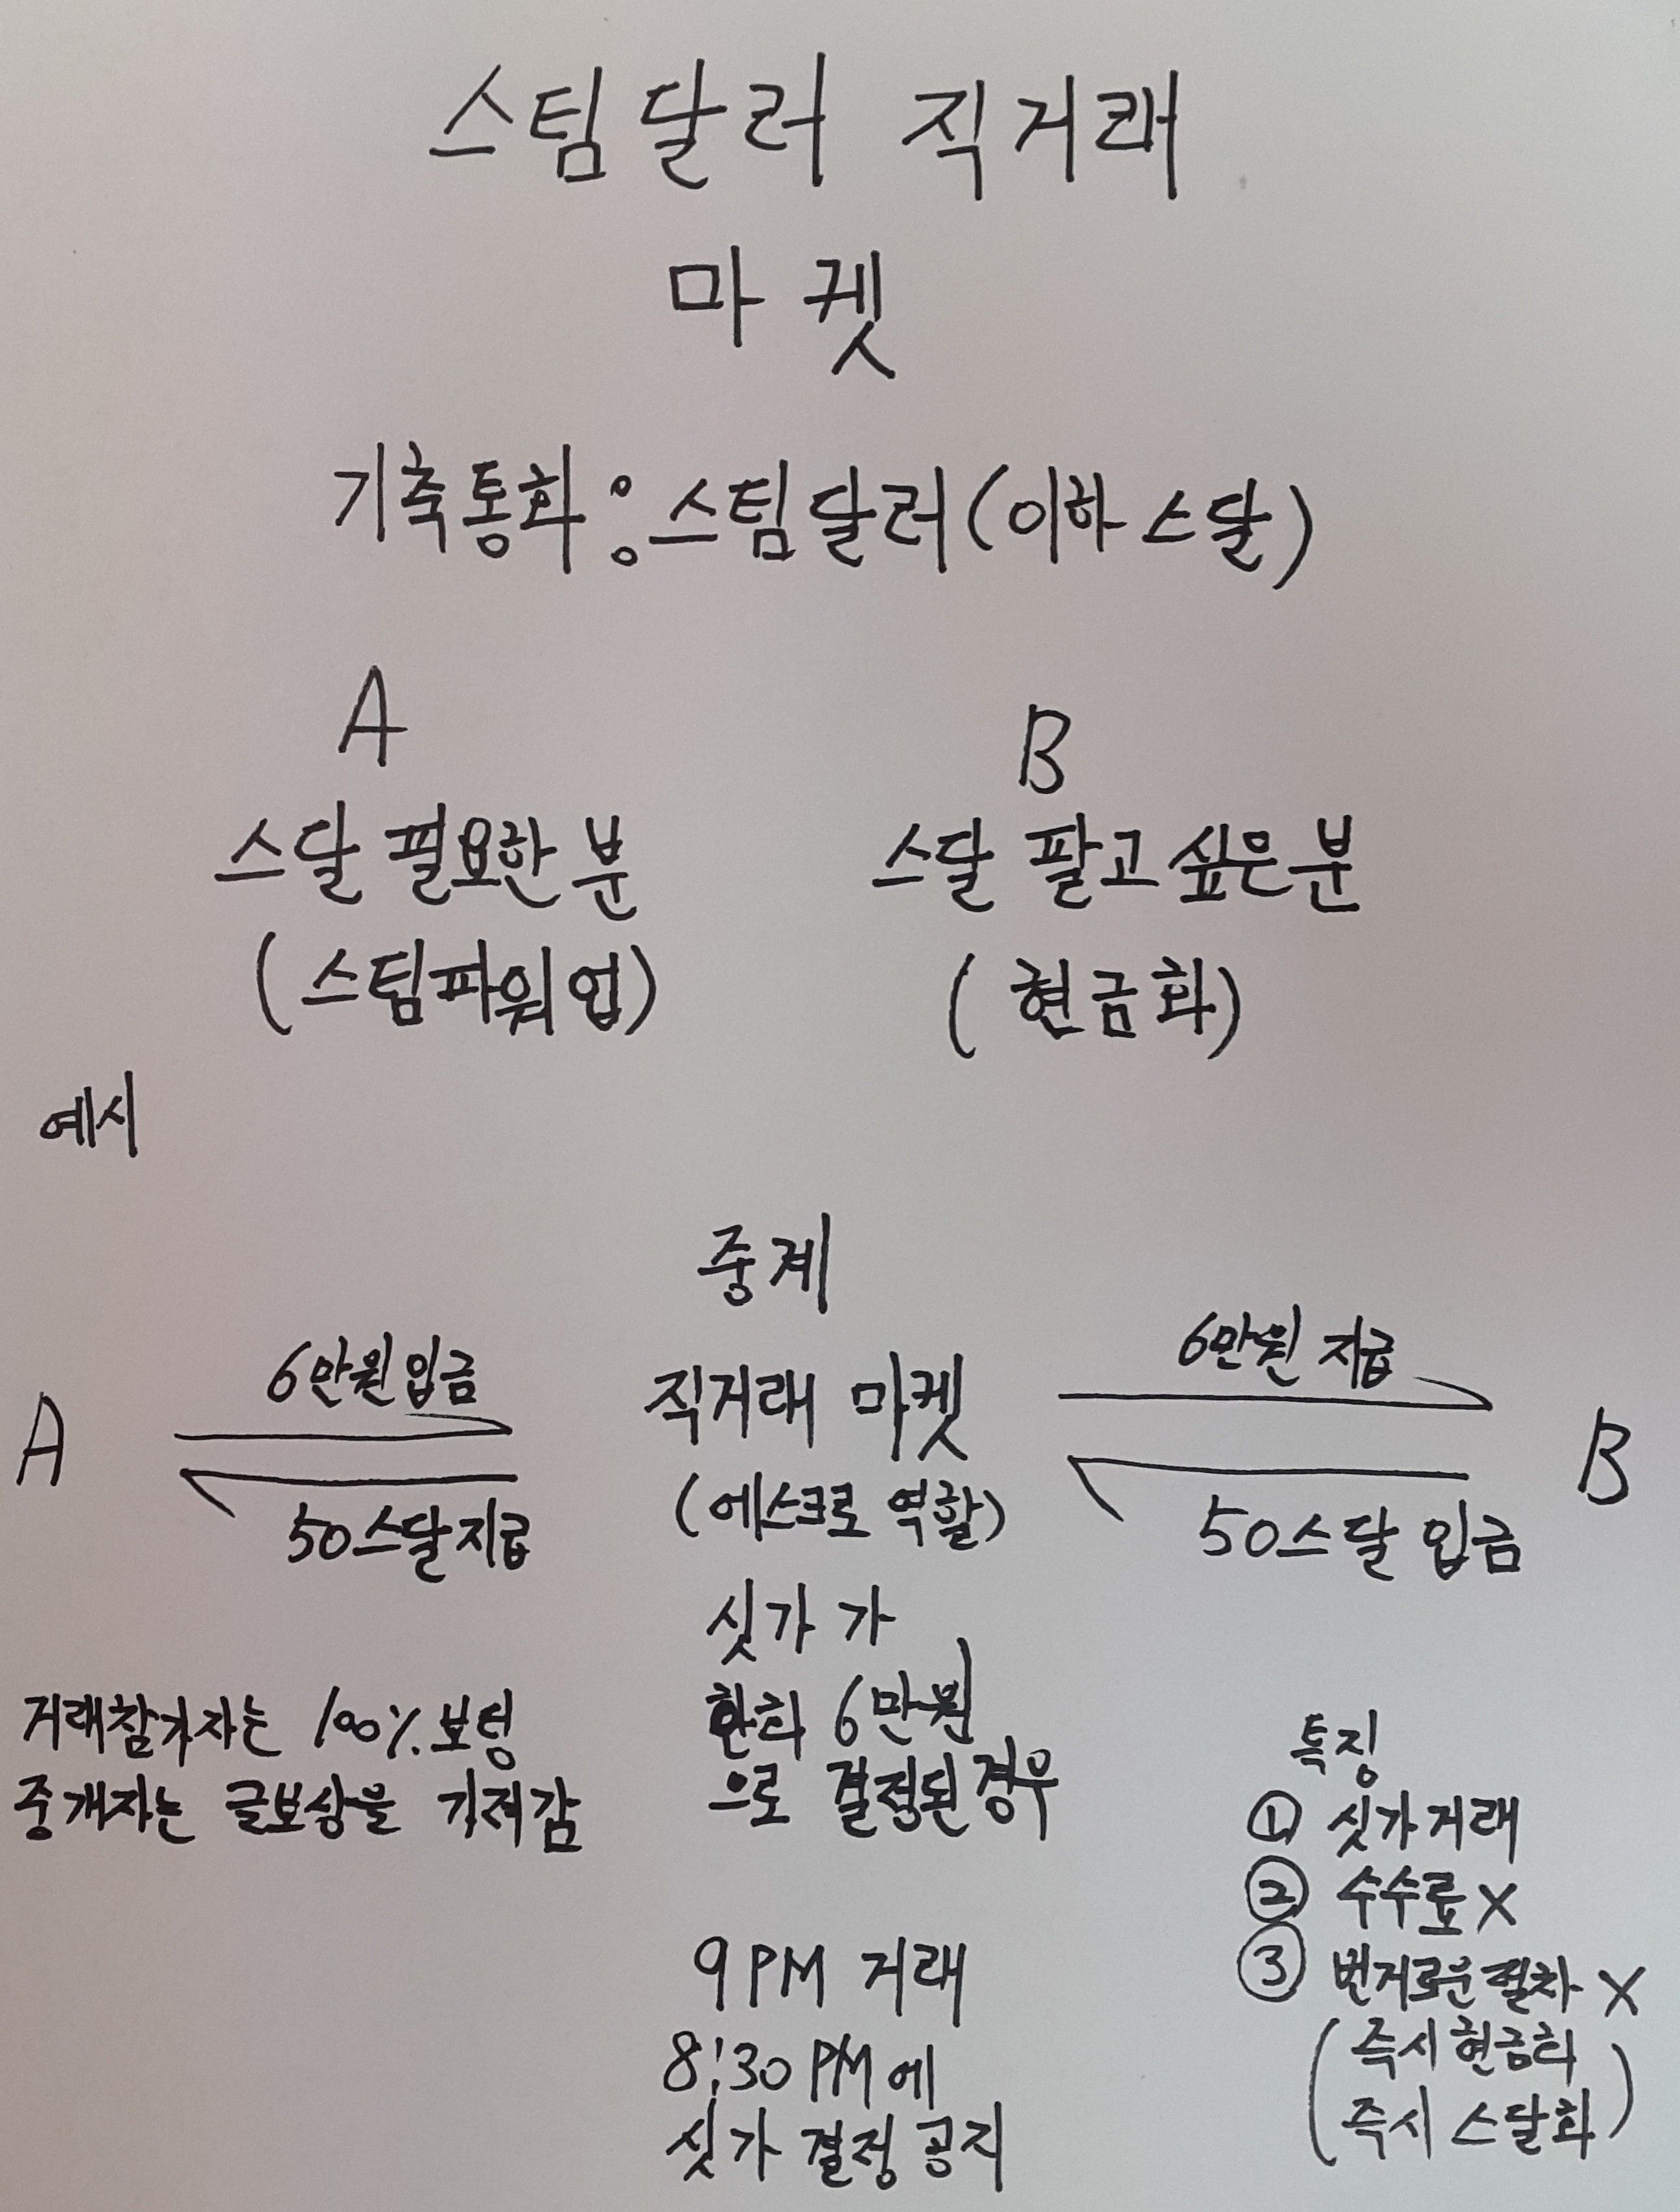 스팀달러 직거래
마켓
기축통화 : 스팀달러 (이하 스달)
A
스달 필요한 분
(스팀파워업)
B
스달 팔고 싶은 분
(현금화)
예시
중계
A
6만원 입금
50스달 지급
직거래 마켓
(에스크로 역할)
6만원 지급
50스달 입금
B
싯가 가
한화 6만원
으로 결정된 경우
거래참가자는 100% 보팅
중개자는 글보상을 가져감
특징
① 싯가거래
② 수수료 X
③ 번거로운 절차 X
(즉시 현금화
즉시 스달화)
9PM 거래
8:30 PM 에
싯가 결정 공지